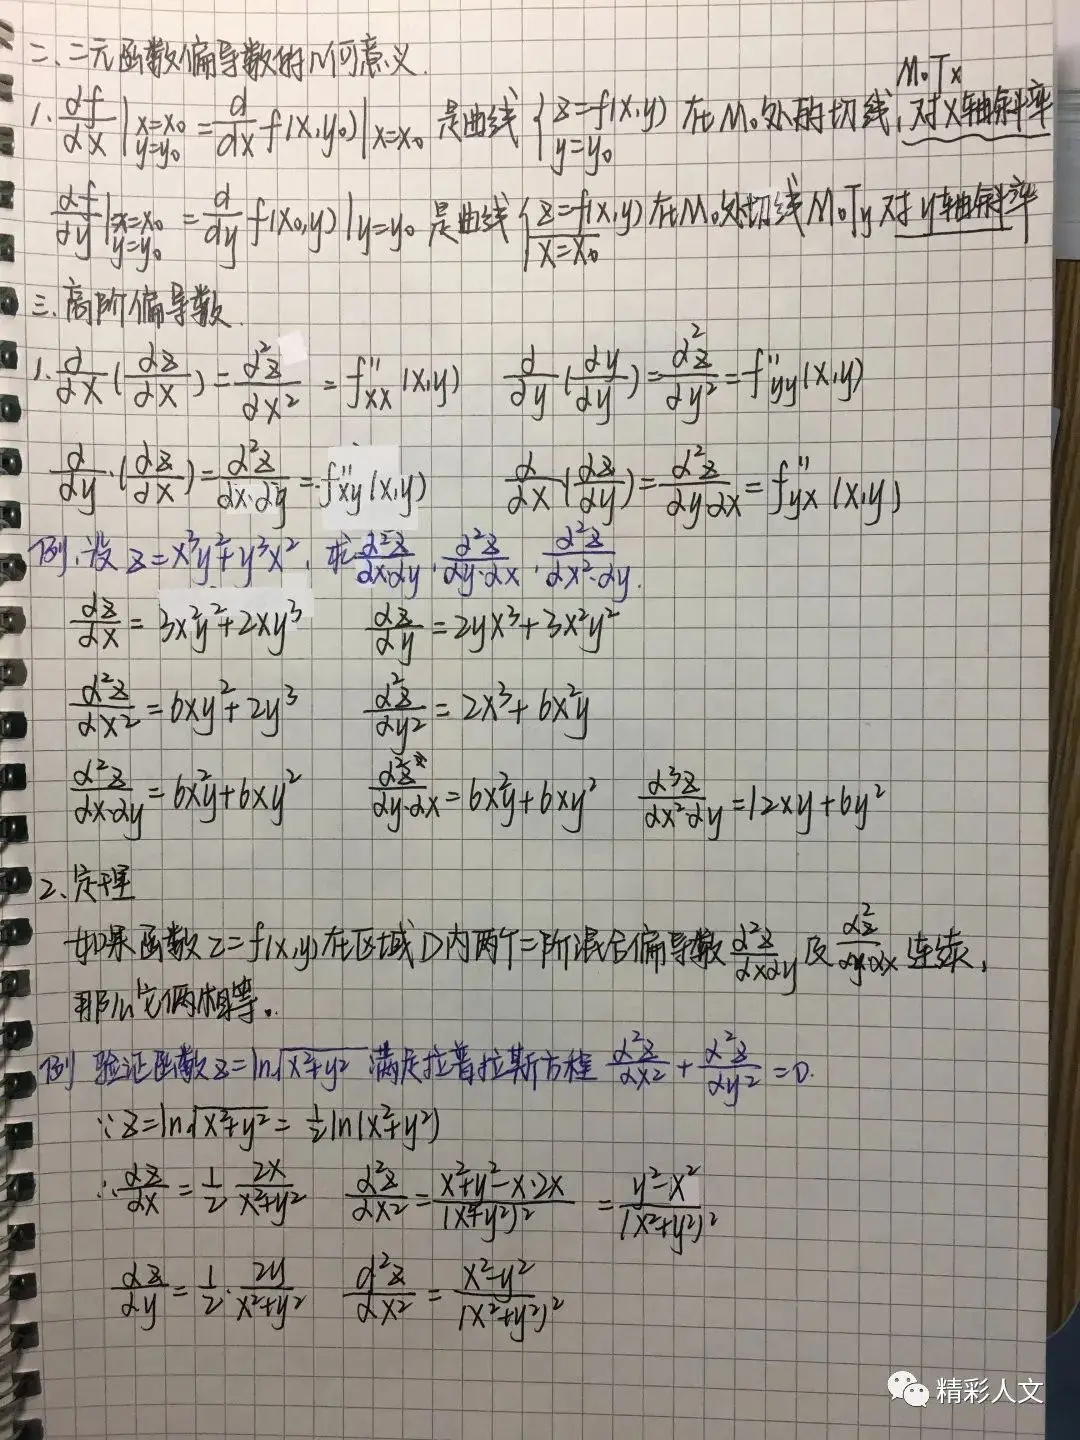 二、二元函数偏导数的几何意义.
M₀Tx
1. ∂f/∂x |x=x₀ y=y₀ = d/dx f(x,y₀)|x=x₀ 是曲线 { z=f(x,y) y=y₀ 在M₀处的切线, 对x轴斜率
∂f/∂y |x=x₀ y=y₀ = d/dy f(x₀,y)|y=y₀ 是曲线 { z=f(x,y) x=x₀ 在M₀处切线M₀Ty对y轴斜率
三、高阶偏导数.
1. ∂/∂x (∂z/∂x) = ∂²z/∂x² = f''xx (x,y) ∂/∂y (∂y/∂y) = ∂²z/∂y² = f''yy (x,y)
∂/∂y · (∂z/∂x) = ∂²z/∂x·∂y = f''xy (x,y) ∂/∂x (∂z/∂y) = ∂²z/∂y·∂x = f''yx (x,y)
例.设 z=x³y²+y³x², 求 ∂²z/∂x·∂y, ∂²z/∂y·∂x, ∂²z/∂x²·∂y.
∂z/∂x = 3x²y²+2xy³ ∂z/∂y = 2yx³+3x²y²
∂²z/∂x² = 6xy²+2y³ ∂²z/∂y² = 2x³+6x²y
∂²z/∂x·∂y = 6x²y+6xy² ∂²z/∂y·∂x = 6x²y+6xy² ∂³z/∂x²·∂y = 12xy+6y²
2、定理
如果函数z=f(x,y)在区域D内两个二阶混合偏导数 ∂²z/∂x∂y 及 ∂²z/∂y·∂x 连续,
那么它俩相等。
例 验证函数z=ln√x²+y² 满足拉普拉斯方程 ∂²z/∂x² + ∂²z/∂y² = 0.
∵ z=ln√x²+y² = ½ln(x²+y²)
∴ ∂z/∂x = 1/2 · 2x/x²+y² ∂²z/∂x² = x²+y²-x·2x/(x²+y²)² = y²-x²/(x²+y²)²
∂z/∂y = 1/2 · 2y/x²+y² ∂²z/∂x² = x²-y²/(x²+y²)²
精彩人文